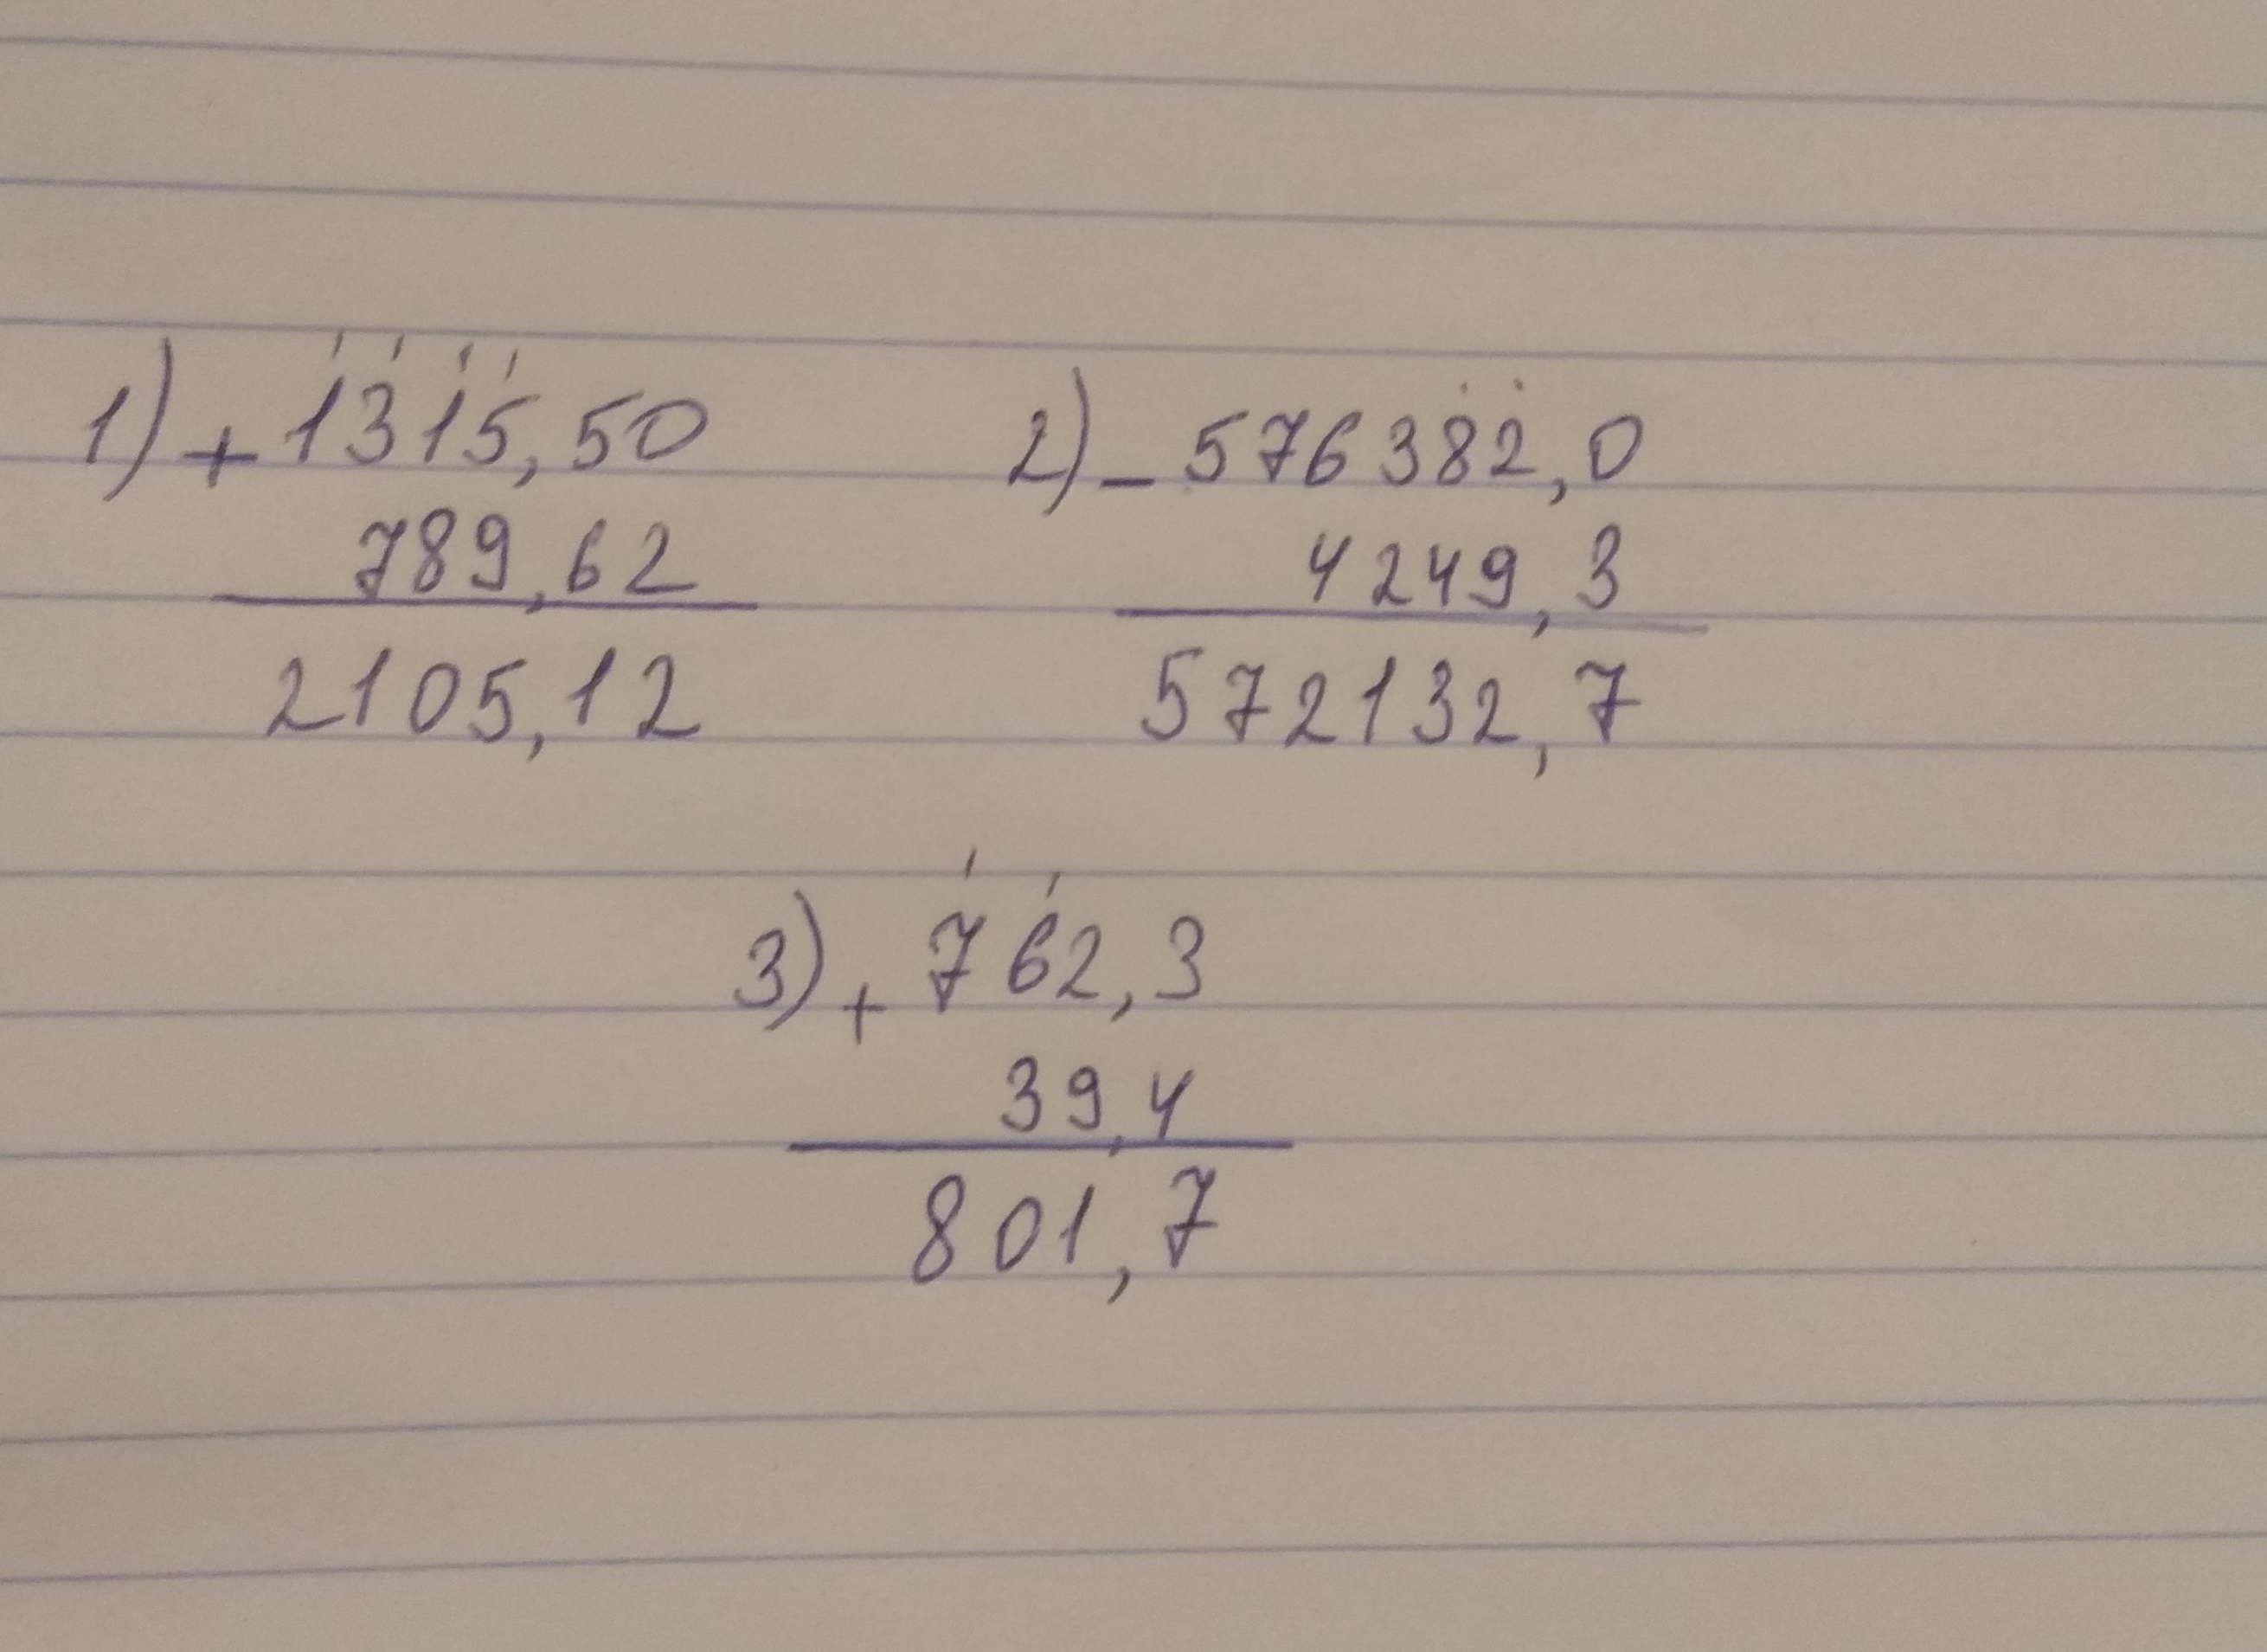 1) + 1315,50 2) - 576382,0
789,62 4249,3
2105,12 572132,7
3) + 762,3
39,4
801,7